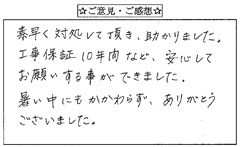 ☆ご意見・ご感想☆
素早く対処して頂き、助かりました。
工事保証10年間など、安心して
お願いする事ができました。
暑い中にもかかわらず、ありがとう
ございました。